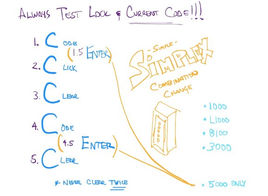 ALWAYS TEST LOCK & CURRENT CODE!!!
1. CODE
(1.5 ENTER)
2. CLICK
3. CLEAR
4. CODE
(4.5 ENTER)
5. CLEAR
* NEVER CLEAR TWICE
SO SIMPLE
SIMPLEX
COMBINATION
CHANGE
• 1000
• L1000
• 8100
• 3000
• 5000 ONLY